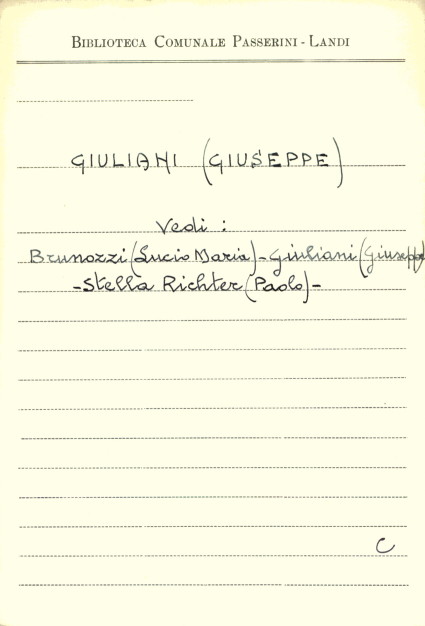 BIBLIOTECA COMUNALE PASSERINI - LANDI
GIULIANI (GIUSEPPE)
Vedi :
Brunozzi (Lucio Maria) - Giuliani (Giuseppe)
- Stella Richter (Paolo) -
C